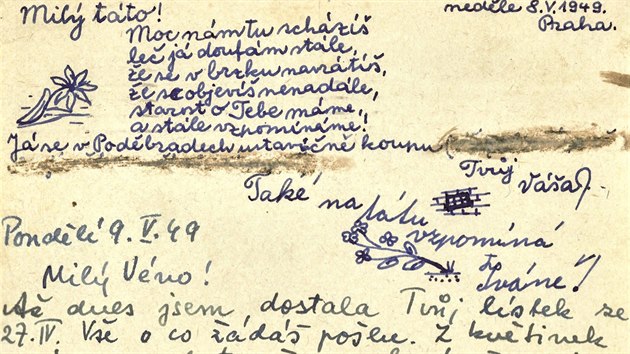 Milý táto!
neděle 8.V.1949.
Praha.
Moc nám tu scházíš
leč já doufám stále,
že se v brzku navrátíš,
že se objevíš nenadále,
starost o Tebe máme,
a stále vzpomínáme!
Já se v Poděbradech ustavičně koupu
Tvůj
Váša
Také na tátu
vzpomíná
Iváne!
Pondělí 9. V. 49
Milý Véno!
Až dnes jsem dostala Tvůj lístek ze
27.IV. Vše o co žádáš pošlu. Z květinek